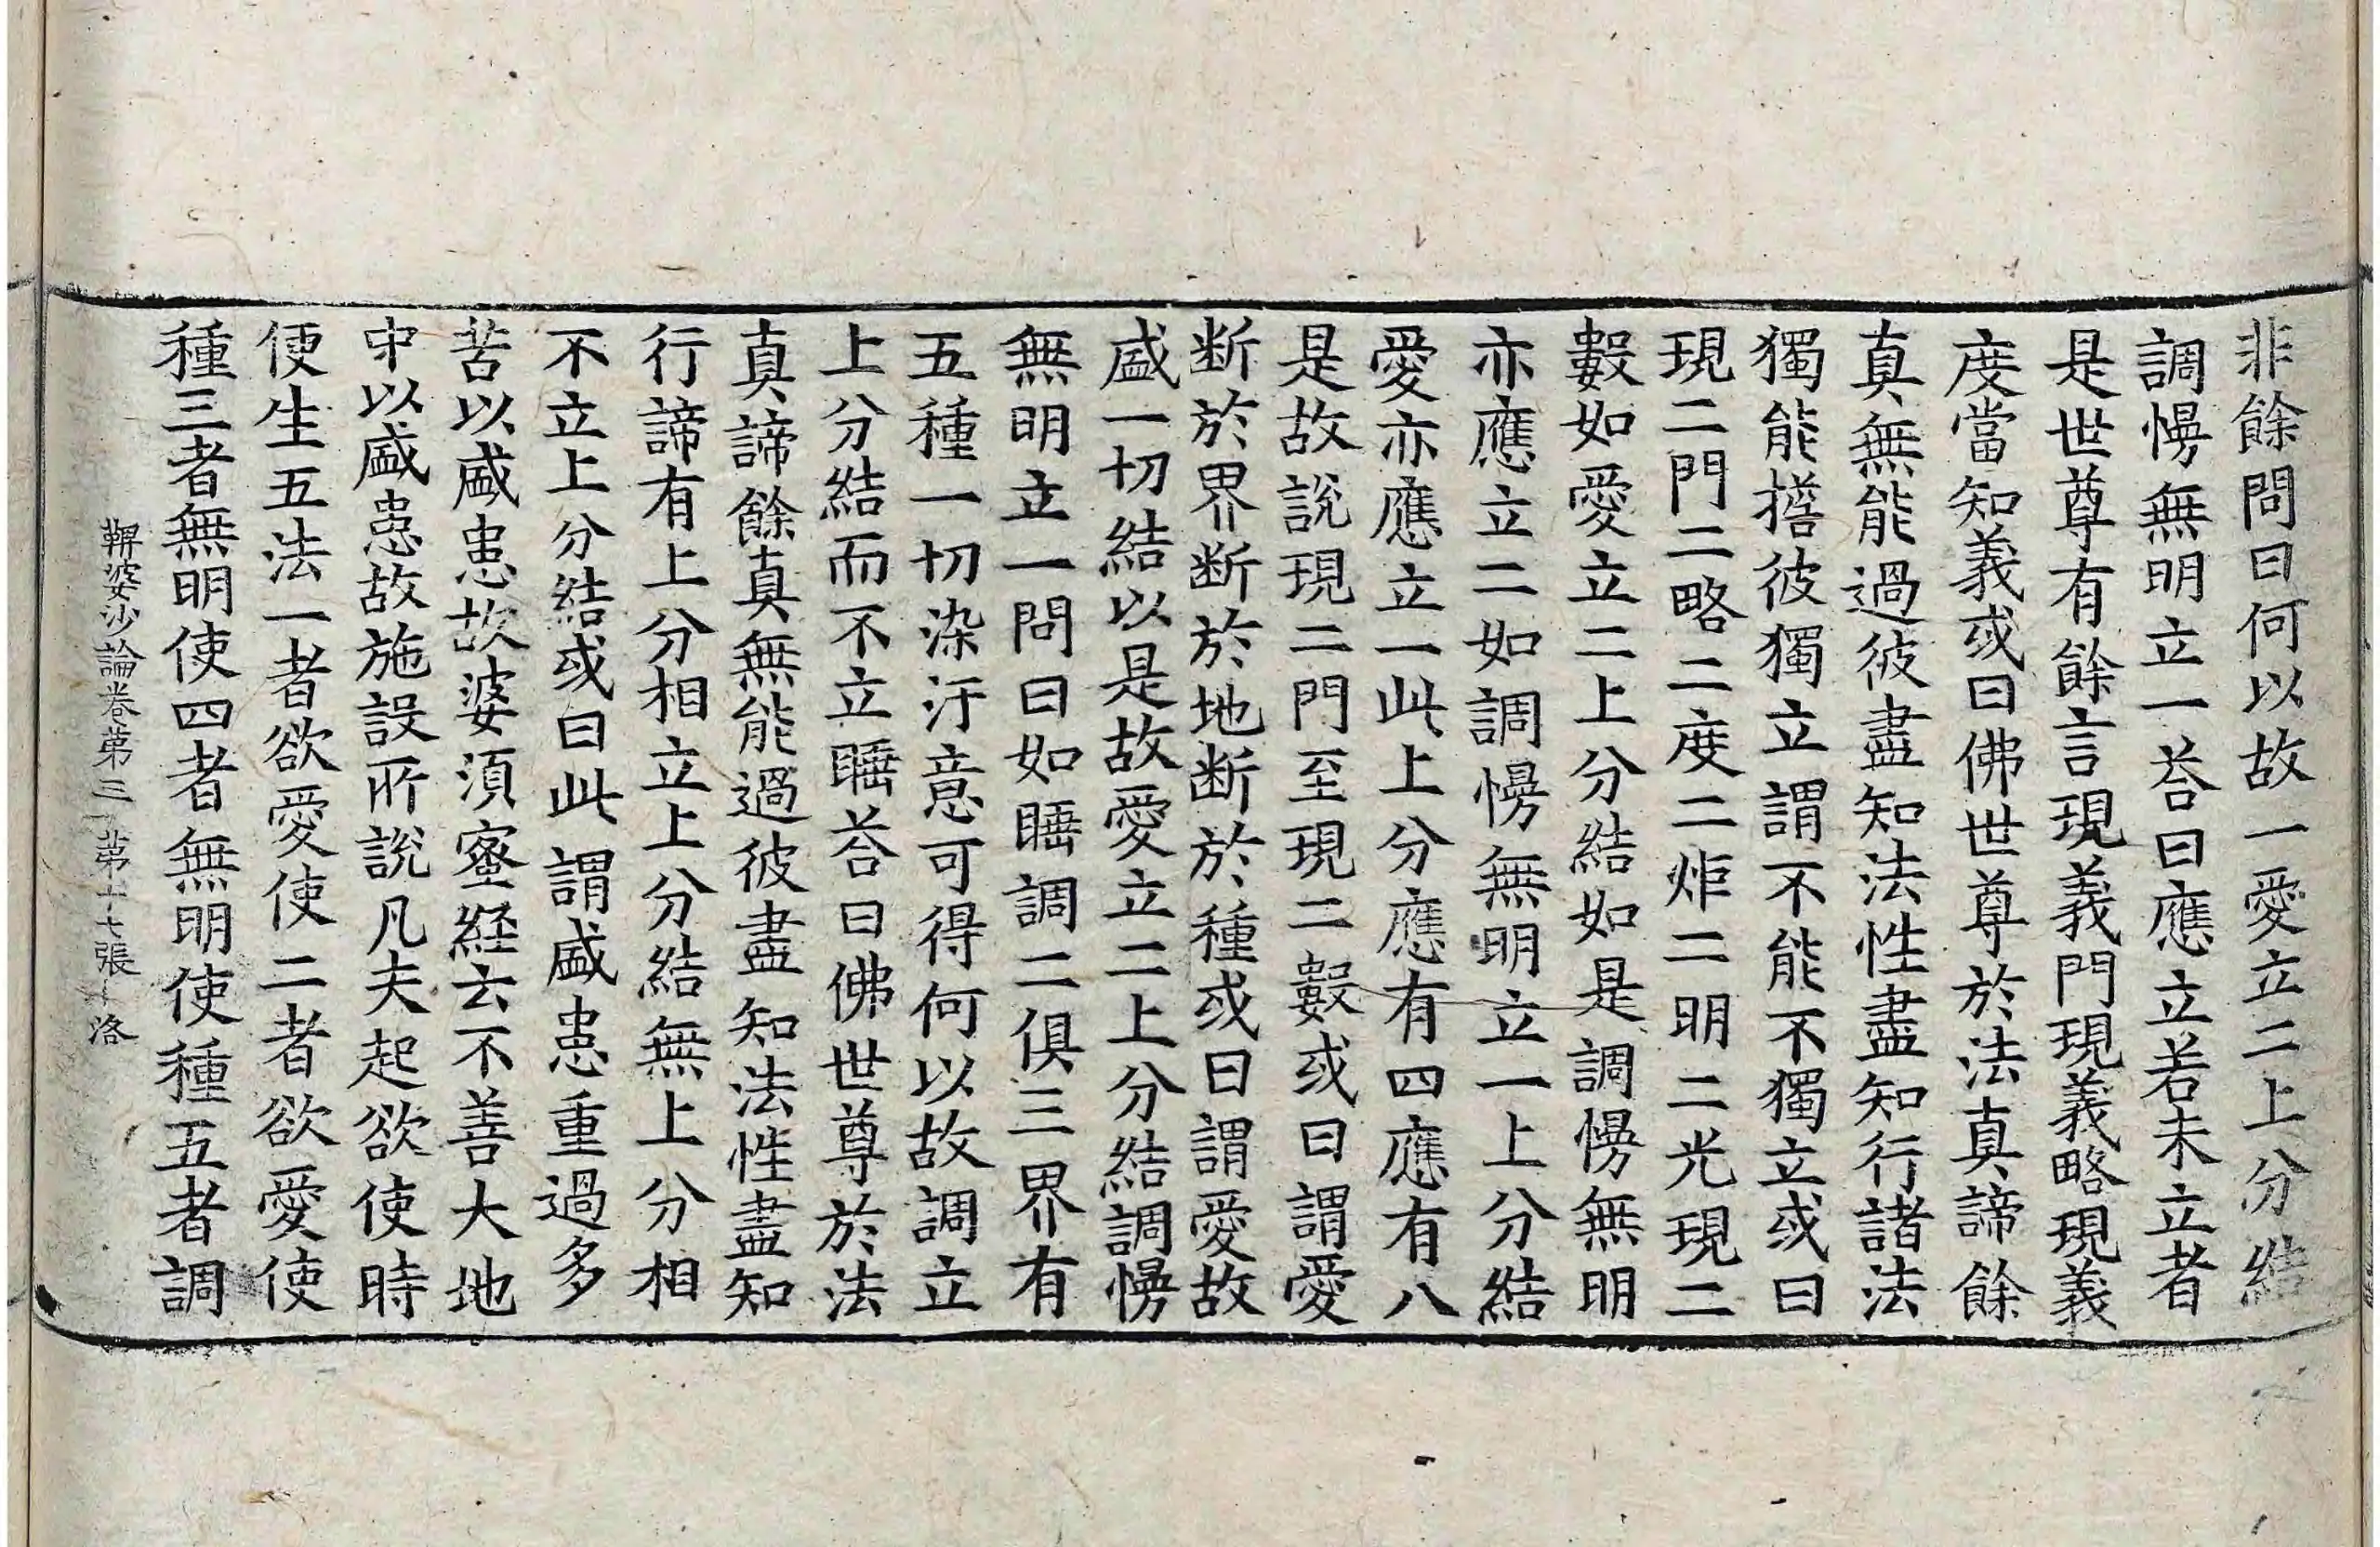 非餘問曰何以故一愛立二上分結
調慢無明立一荅曰應立若未立者
是世尊有餘言現義門現義略現義
度當知義或曰佛世尊於法真諦餘
真無能過彼盡知法性盡知行諸法
獨能擔彼獨立謂不能不獨立或曰
現二門二略二度二炬二明二光現二
數如愛立二上分結如是調慢無明
亦應立二如調慢無明立一上分結
愛亦應立一此上分應有四應有八
是故說現二門至現二數或曰謂愛
断於界断於地断於種或曰謂愛故
盛一切結以是故愛立二上分結調慢
無明立一問曰如睡調二俱三界有
五種一切染汙意可得何以故調立
上分結而不立睡荅曰佛世尊於法
真諦餘真無能過彼盡知法性盡知
行諦有上分相立上分結無上分相
不立上分結或曰此謂盛患重過多
苦以盛患故婆湏蜜経云不善大地
中以盛患故施設所說凡夫起欲使時
便生五法一者欲愛使二者欲愛使
種三者無明使四者無明使種五者調
鞞婆沙論卷第三 第十七張 洛